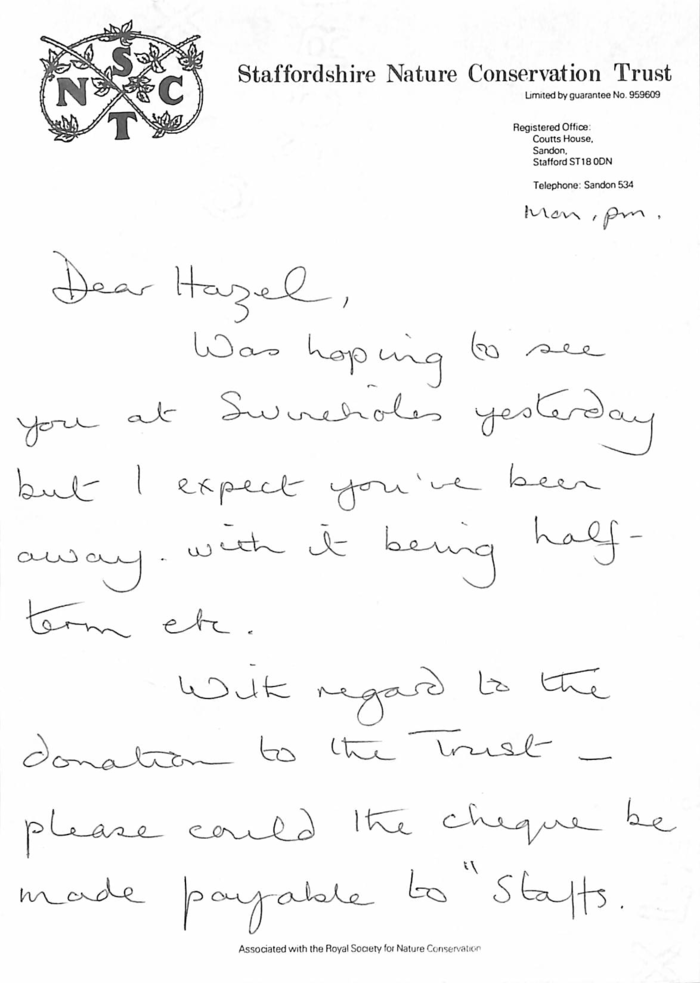 S
N C
T
Staffordshire Nature Conservation Trust
Limited by guarantee No. 959609
Registered Office:
Coutts House,
Sandon,
Stafford ST18 0DN
Telephone: Sandon 534
Mon, pm.
Dear Hazel,
Was hoping to see
you at Swineholes yesterday
but I expect you've been
away. with it being half-
term etc.
With regard to the
donation to the Trust –
please could the cheque be
made payable to "Staffs.
Associated with the Royal Society for Nature Conservation